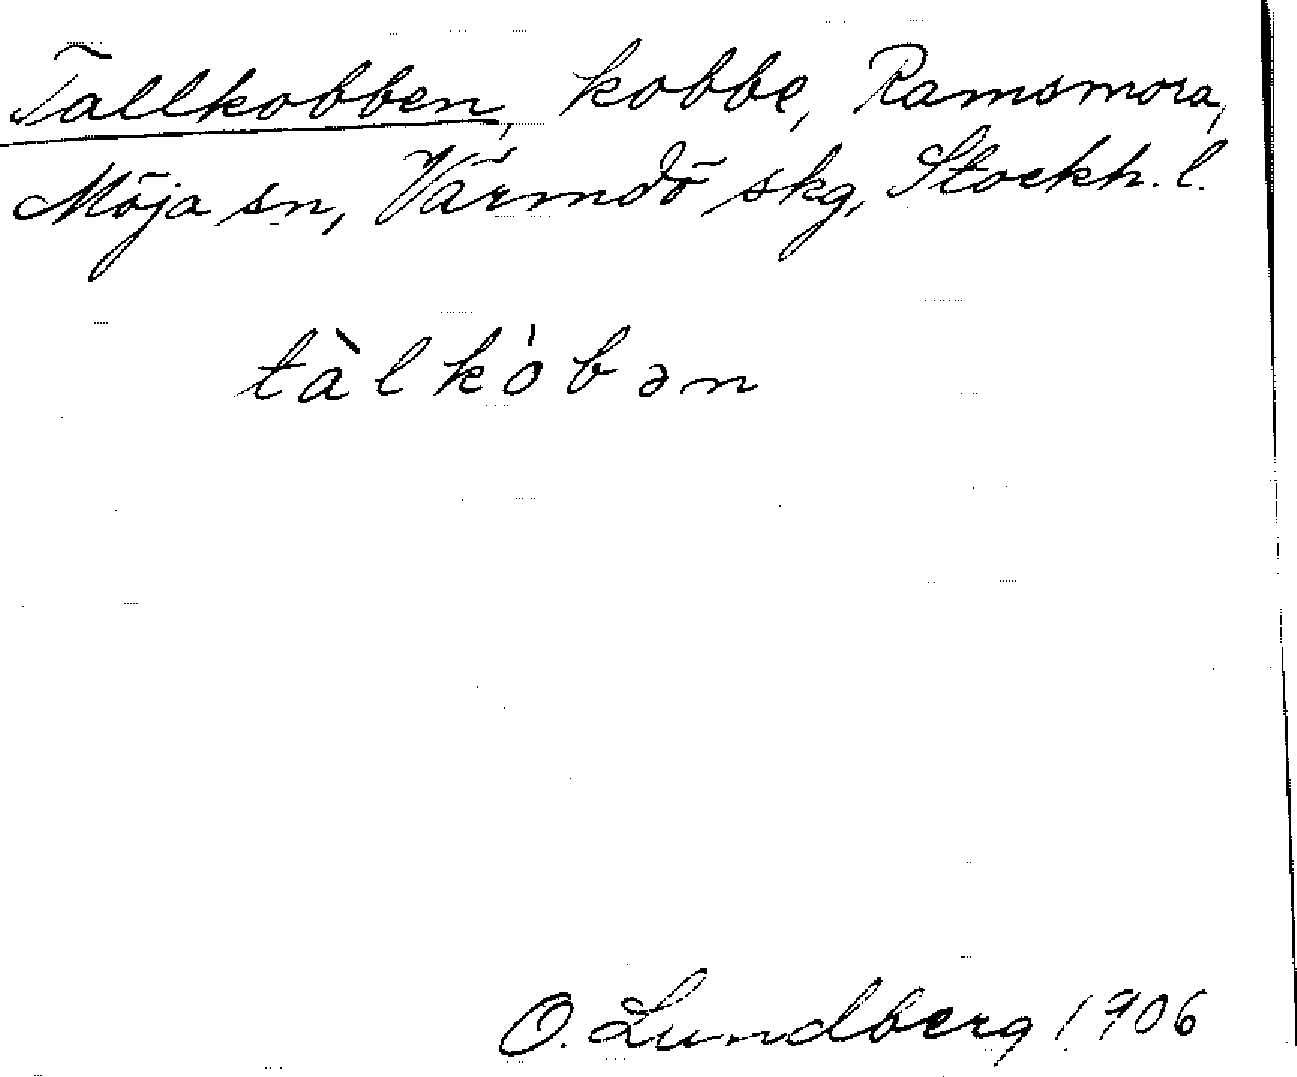 Tallkobben, kobbe, Ramsmora,
Möja sn, Värmdö skg, Stockh. l.
tàlkȯbən
O. Lundberg 1906